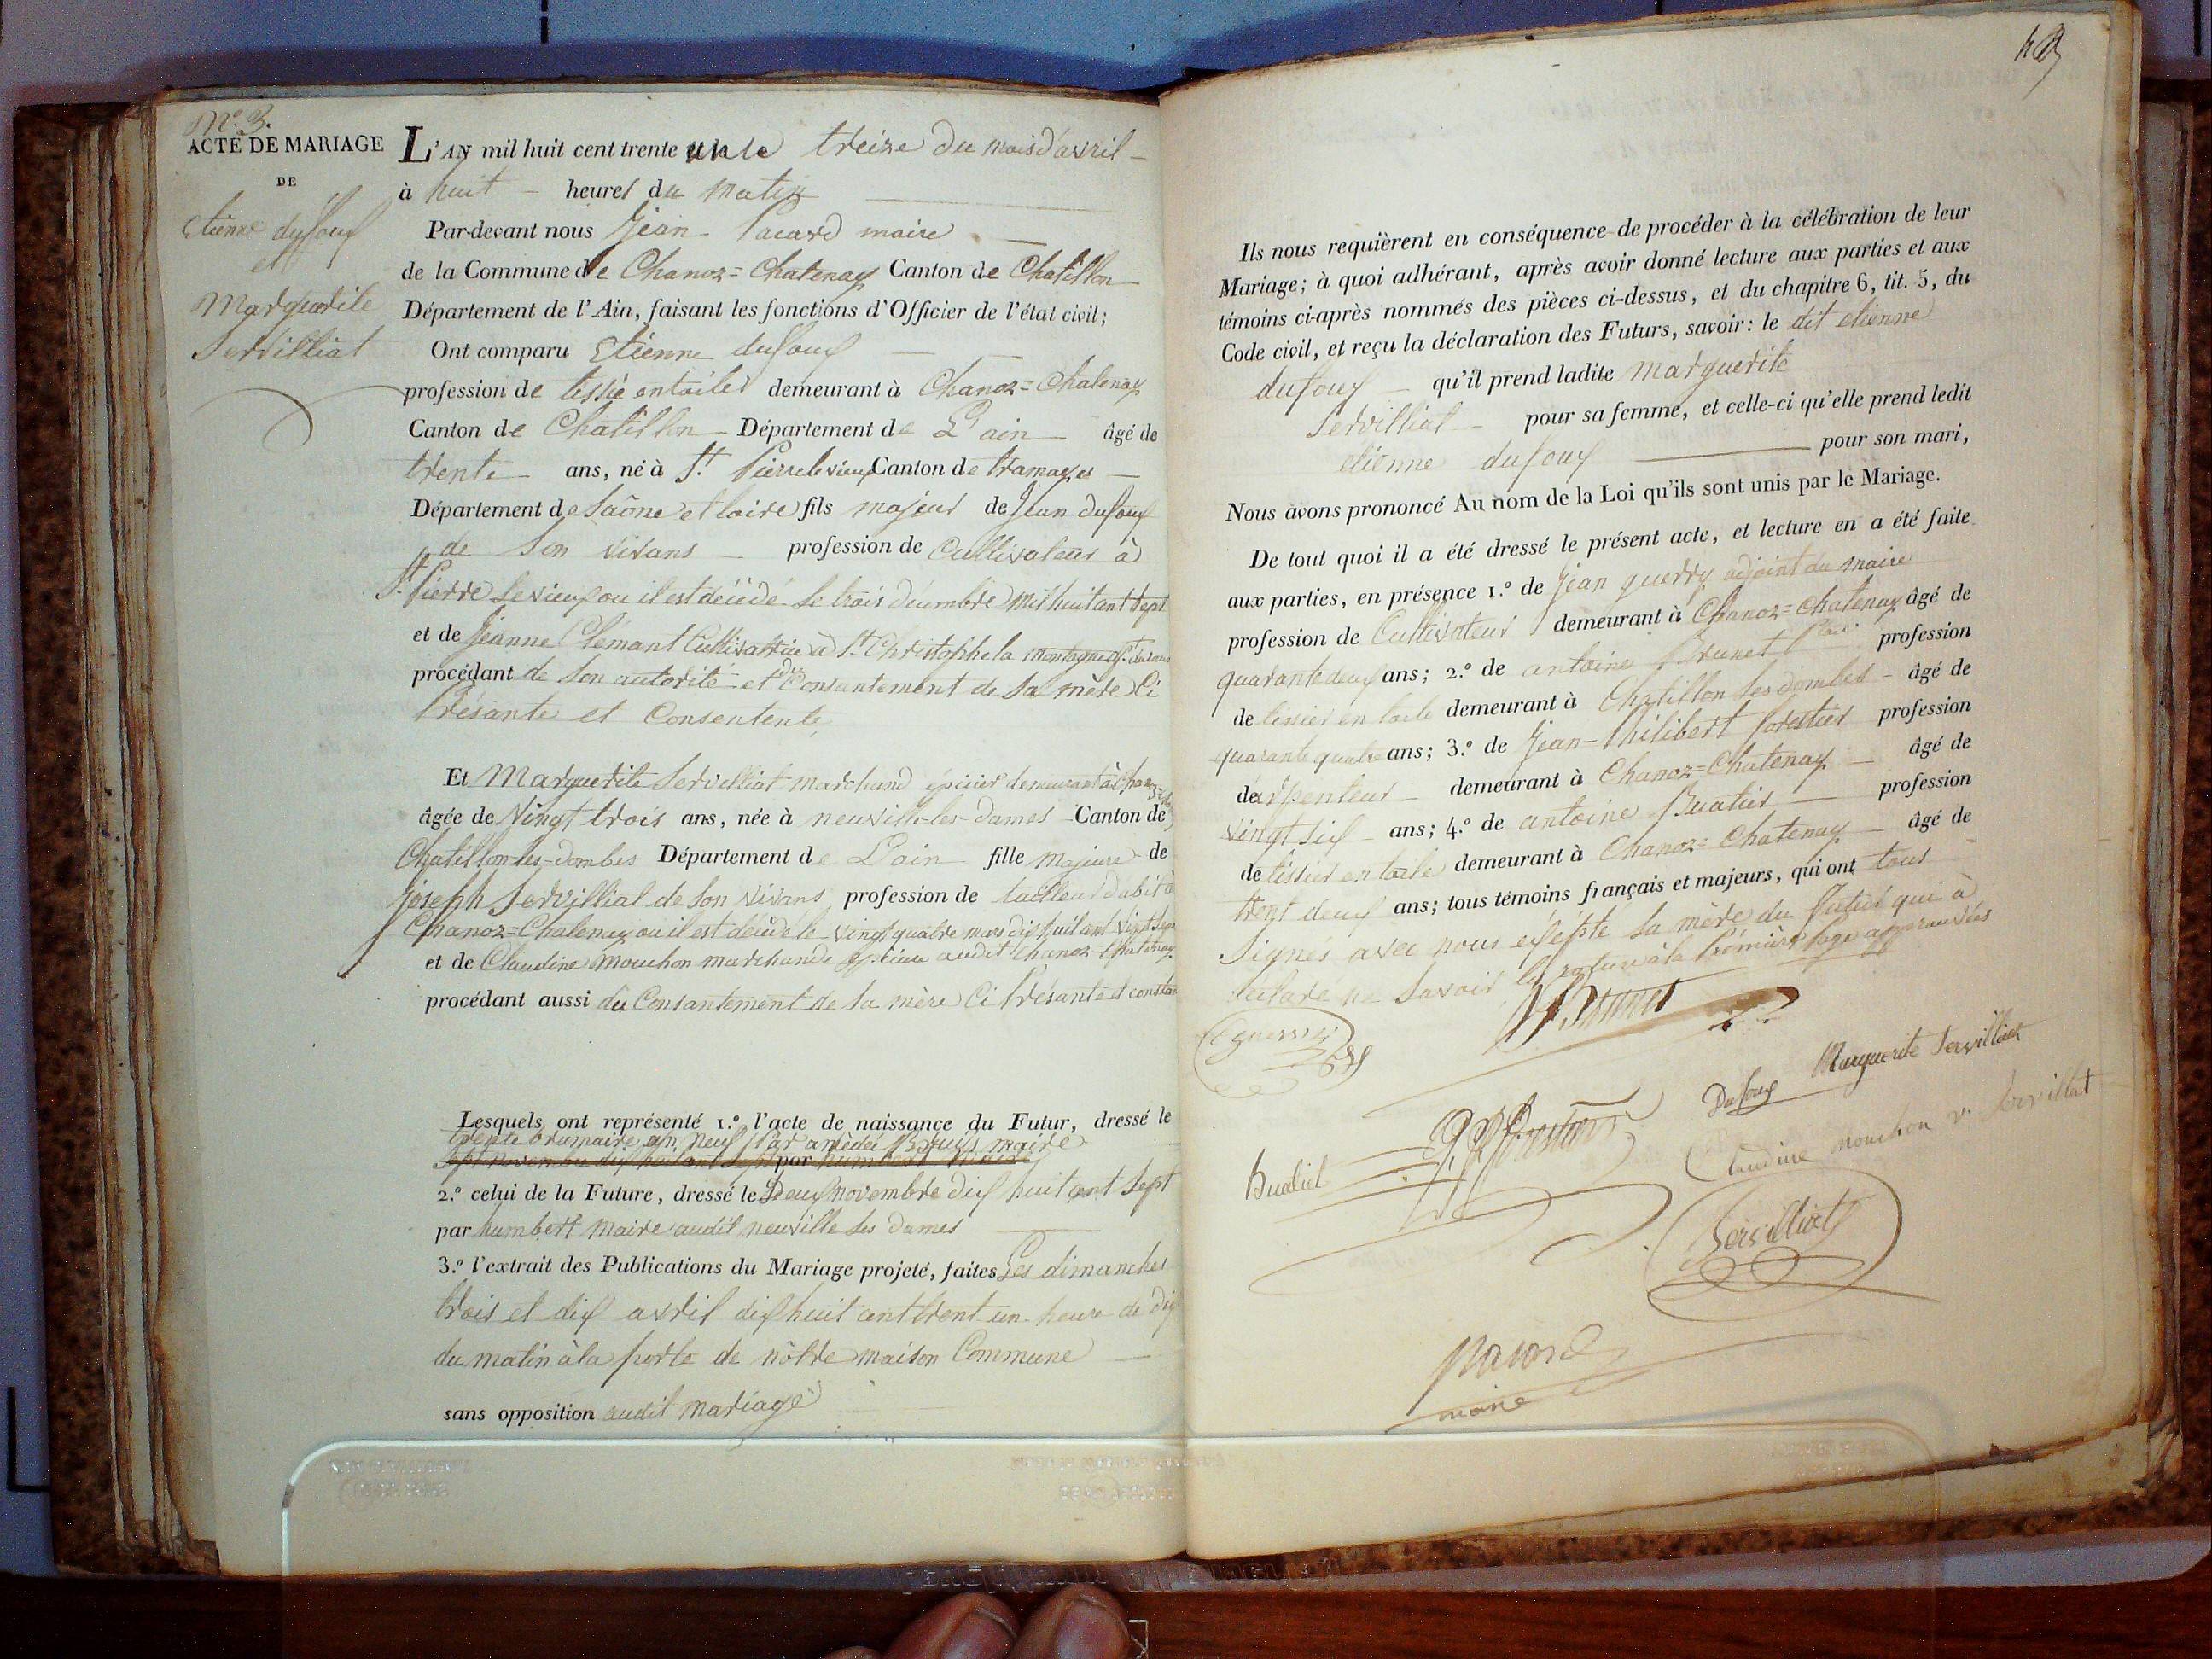 N.º 3.
ACTE DE MARIAGE
DE
Etienne dufour
et
Marguerite
Servilliat
L'AN mil huit cent trente un le treize du mois d'avril
à huit heures du matin
Par-devant nous Jean Pacard maire
de la Commune de Chanoz=Chatenay Canton de Chatillon
Département de l'Ain, faisant les fonctions d'Officier de l'état civil;
Ont comparu Etienne dufour
profession de tissié en toiles demeurant à Chanoz=Chatenay
Canton de Chatillon Département de L'ain âgé de
trente ans, né à St. Pierre le vieux Canton de tramayes
Département de Saône et loire fils majeur de Jean dufour
de son vivans profession de Cultivateur à
St. Pierre le vieux ou il est décédé le trois décembre mil huit cent sept
et de Jeanne Clémant Cultivatrice à St. Christophe la montagne
procédant de son autorité et du Consantement de sa mère Ci
Présante et Consentente
Et Marguerite Servilliat marchand épicier demeurant à
âgée de Vingt trois ans, née à neuville-les-Dames Canton de
Chatillon-les-dombes Département de L'ain fille majeure de
joseph Servilliat de son vivans profession de tailleur d'abit à
Chanoz=Chatenay ou il est décédé le vingt quatre mars dix huit cent vingt sept
et de Claudine Mouchon marchande audit Chanoz-Chatenay
procédant aussi du Consantement de sa mère Ci Présante et
Lesquels ont représenté 1.º l'acte de naissance du Futur, dressé le
trente brumaire an neuf Par amédée maire
sept novembre dix huit cent sept par humbert maire
2.º celui de la Future, dressé le Deux novembre dix huit cent sept
par humbert maire audit neuville les dames
3.º l'extrait des Publications du Mariage projeté, faites Les dimanches
trois et dix avril dix huit cent trent un heure de dix
du matin à la porte de nôtre maison Commune
sans opposition audit mariage
Ils nous requièrent en conséquence de procéder à la célébration de leur
Mariage; à quoi adhérant, après avoir donné lecture aux parties et aux
témoins ci-après nommés des pièces ci-dessus, et du chapitre 6, tit. 5, du
Code civil, et reçu la déclaration des Futurs, savoir: le dit etienne
dufour qu'il prend ladite marguerite
Servilliat pour sa femme, et celle-ci qu'elle prend ledit
etienne dufour pour son mari,
Nous avons prononcé Au nom de la Loi qu'ils sont unis par le Mariage.
De tout quoi il a été dressé le présent acte, et lecture en a été faite
aux parties, en présence 1.º de Jean guerry adjoint du maire
profession de Cultivateur demeurant à Chanoz=Chatenay âgé de
quarante deux ans; 2.º de antoine Brunet profession
de tissier en toile demeurant à Chatillon les dombes âgé de
quarante quatre ans; 3.º de Jean-Philibert forestier profession
d'arpenteur demeurant à Chanoz=Chatenay âgé de
vingt six ans; 4.º de antoine Buatier profession
de tissier en toile demeurant à Chanoz=Chatenay âgé de
trent deux ans; tous témoins français et majeurs, qui ont tous
signés avec nous exepté la mère du futur qui à
declaré ne savoir la rature à la Première page approuvées
guerry
Brunet
Dufour
Marguerite Servilliat
Buatier
Forestier
Claudine mouchon v. Servillat
Servilliat
Pacard
maire